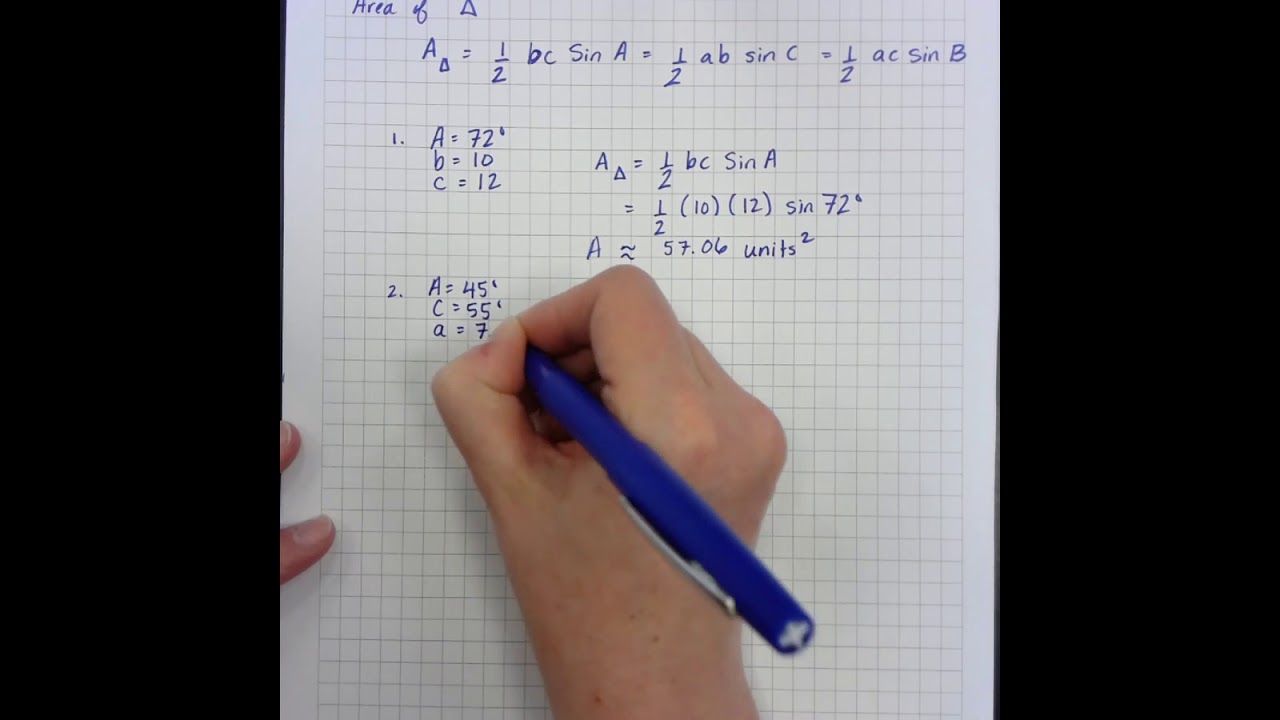 Area of Δ
A△ = 1/2 bc Sin A = 1/2 ab sin C = 1/2 ac sin B
1. A = 72°
b = 10
c = 12
A△ = 1/2 bc Sin A
= 1/2 (10)(12) sin 72°
A ≈ 57.06 units²
2. A = 45°
C = 55°
a = 7